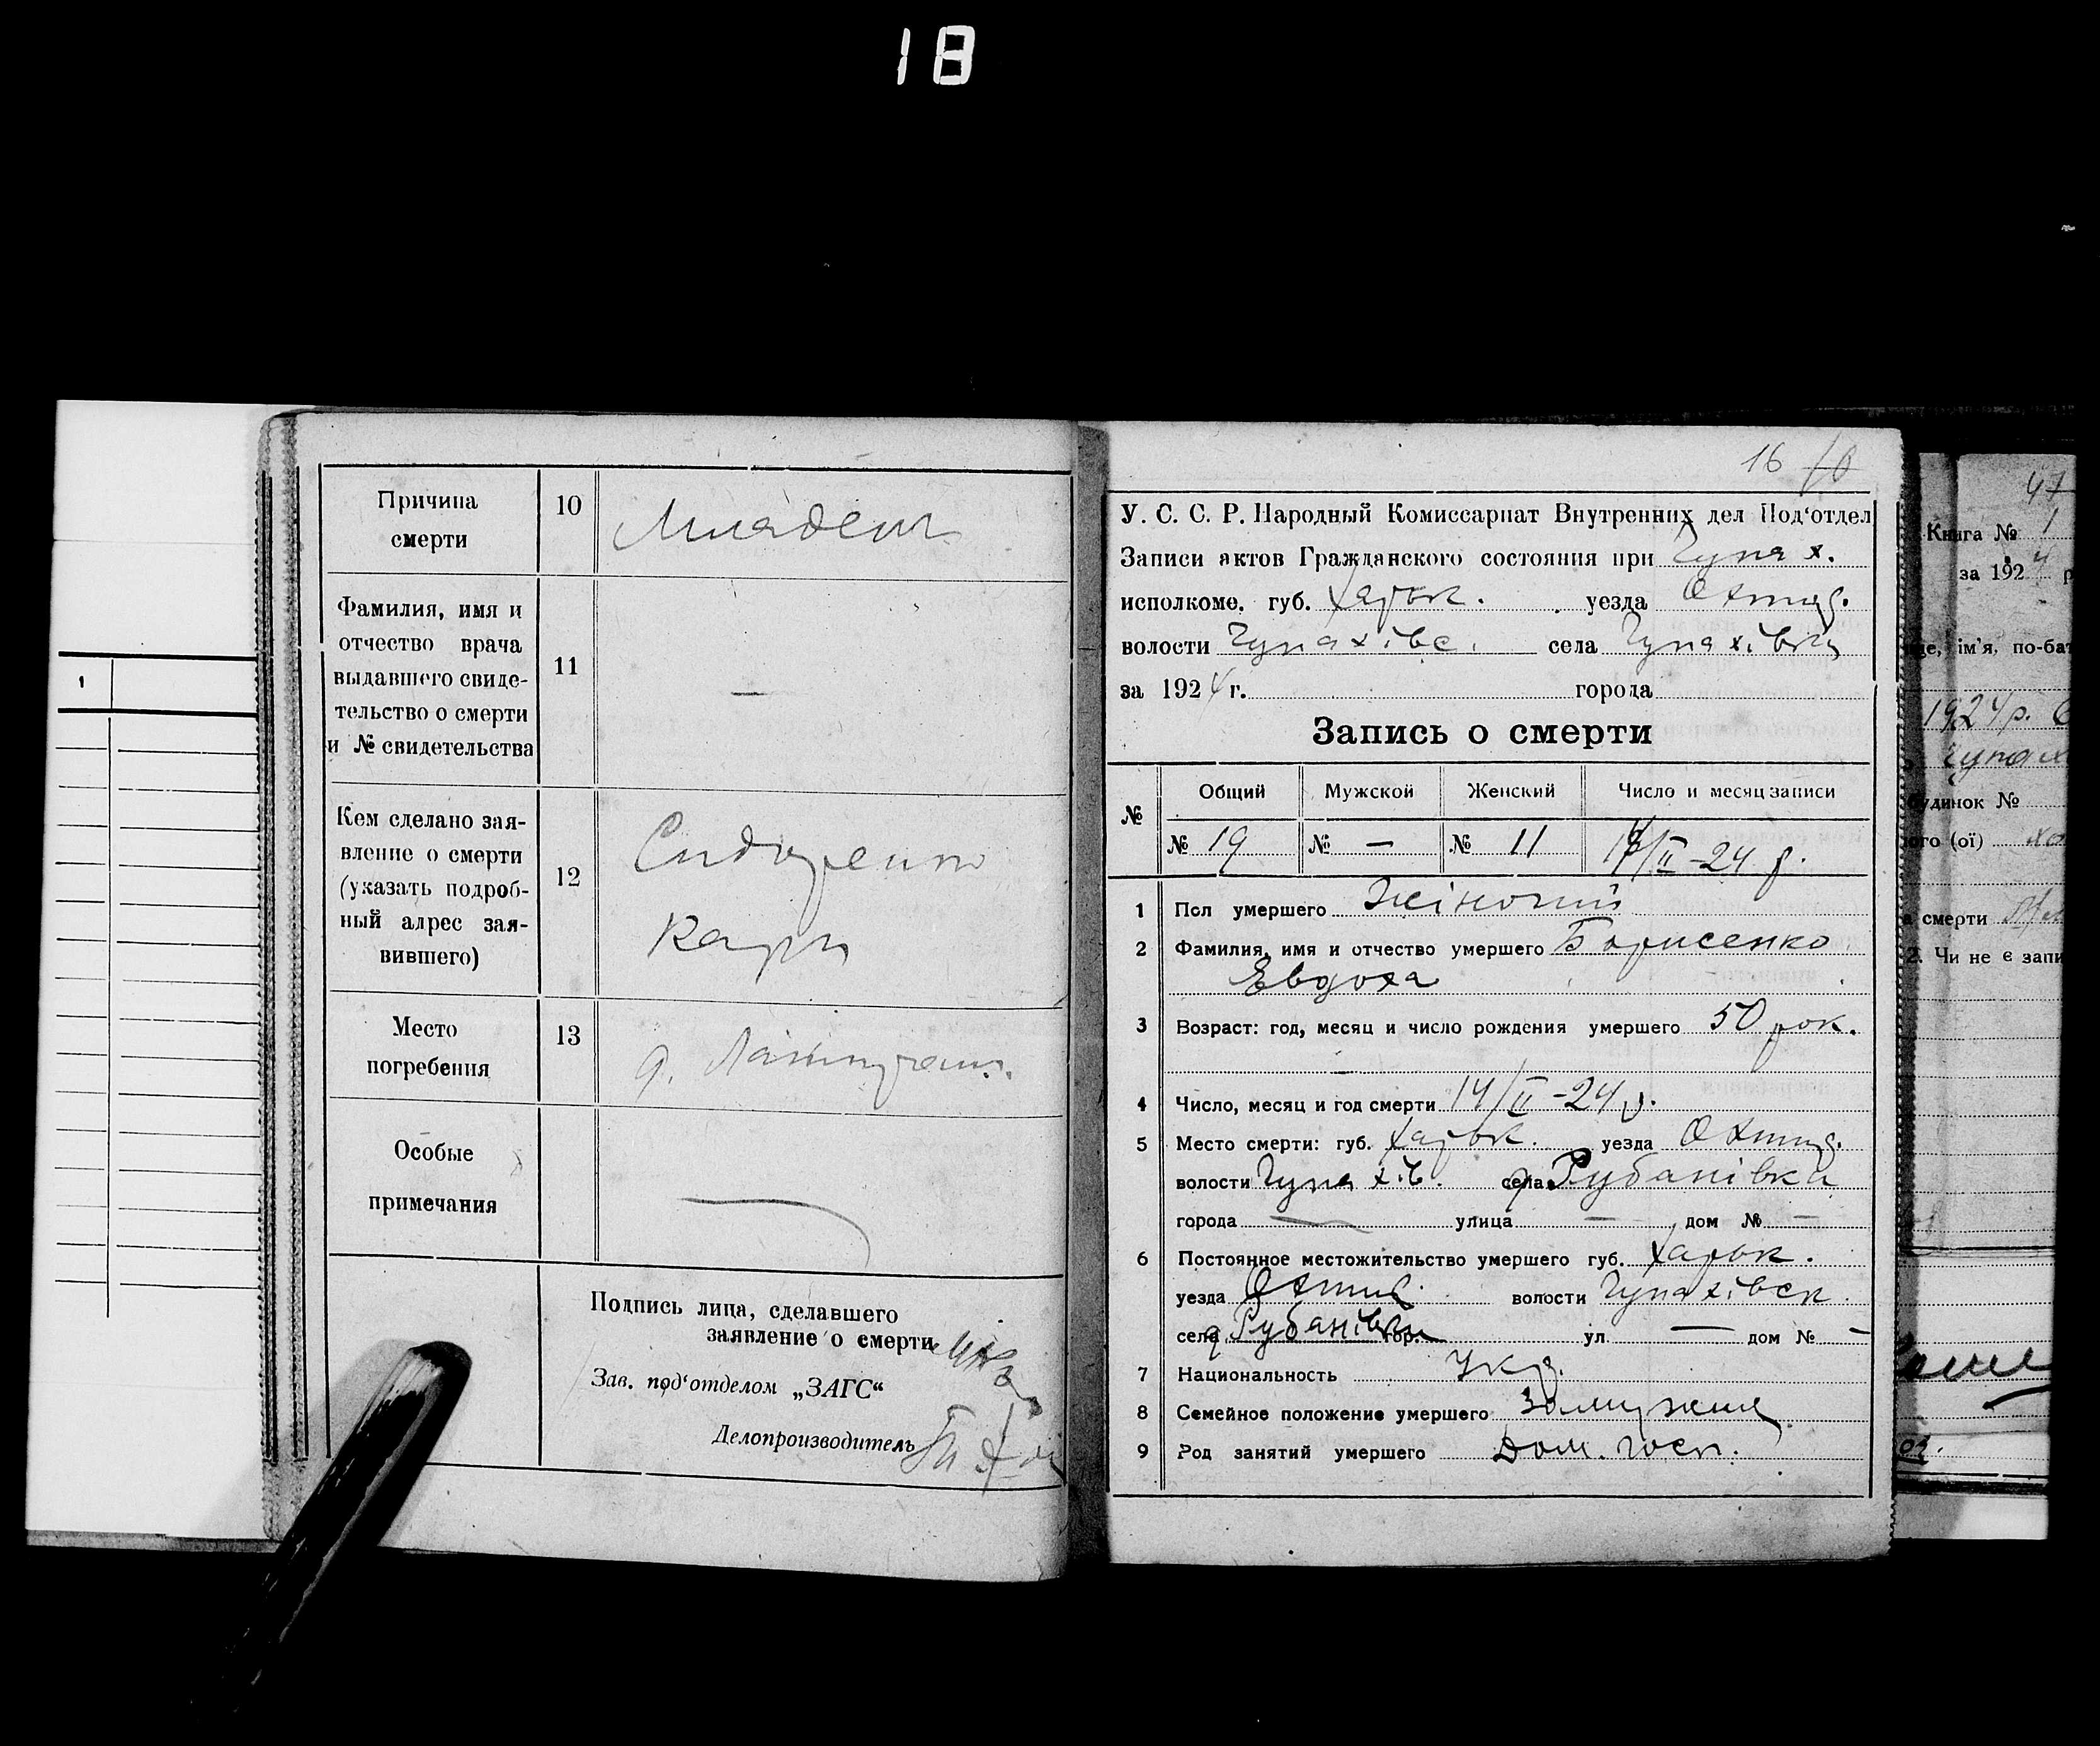 18
1
Причина
смерти
10
Младен.
Фамилия, имя и
отчество врача
выдавшего свиде-
тельство о смерти
и № свидетельства
11
—
Кем сделано зая-
вление о смерти
(указать подроб-
ный адрес зая-
вившего)
12
Сидоренко
Карп
Место
погребения
13
Особые
примечания
Подпись лица, сделавшего
заявление о смерти
Зав. под‘отделом „ЗАГС“
Делопроизводитель
16 10
У. С. С. Р. Народный Комиссариат Внутренних дел Под‘отдел
Записи актов Гражданского состояния при Чупах.
исполкоме. губ. Харьк. уезда Охтир.
волости Чупахівс. села Чупахівки
за 1924 г. города
Запись о смерти
№ Общий Мужской Женский Число и месяц записи
№ 19 № — № 11 /II-24 р.
1 Пол умершего Жіночий
2 Фамилия, имя и отчество умершего Борисенко
Евдоха
3 Возраст: год, месяц и число рождения умершего 50 рок.
4 Число, месяц и год смерти 14/II-24 р.
5 Место смерти: губ. Харьк. уезда Охтир.
волости Чупахів. села Рубанівка
города — улица — дом № —
6 Постоянное местожительство умершего губ. Харьк.
уезда Охтир. волости Чупахівск.
села Рубанівки гор. ул. — дом № —
7 Национальность Укр.
8 Семейное положение умершего Замужня
9 Род занятий умершего Дом. госп.
47
Книга № 1
за 1924 р
ім'я, по-бат
1924 р.
Чупах
будинок №
ого (ої)
а смерти
2. Чи не є запи